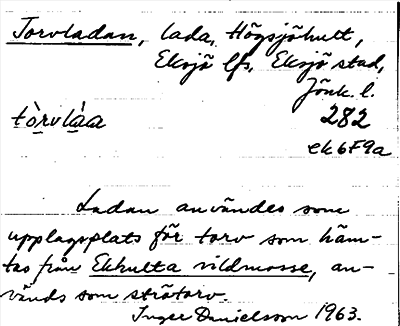 Torvladan, lada, Högsjöhult,
Eksjö lfs, Eksjö stad,
Jönk. l.
tòrvlàa 282
ek 6F9a
Ladan användes som
upplagsplats för torv som häm-
tas från Ekhulta vildmosse, an-
vänds som strötorv.
Inger Danielsson 1963.